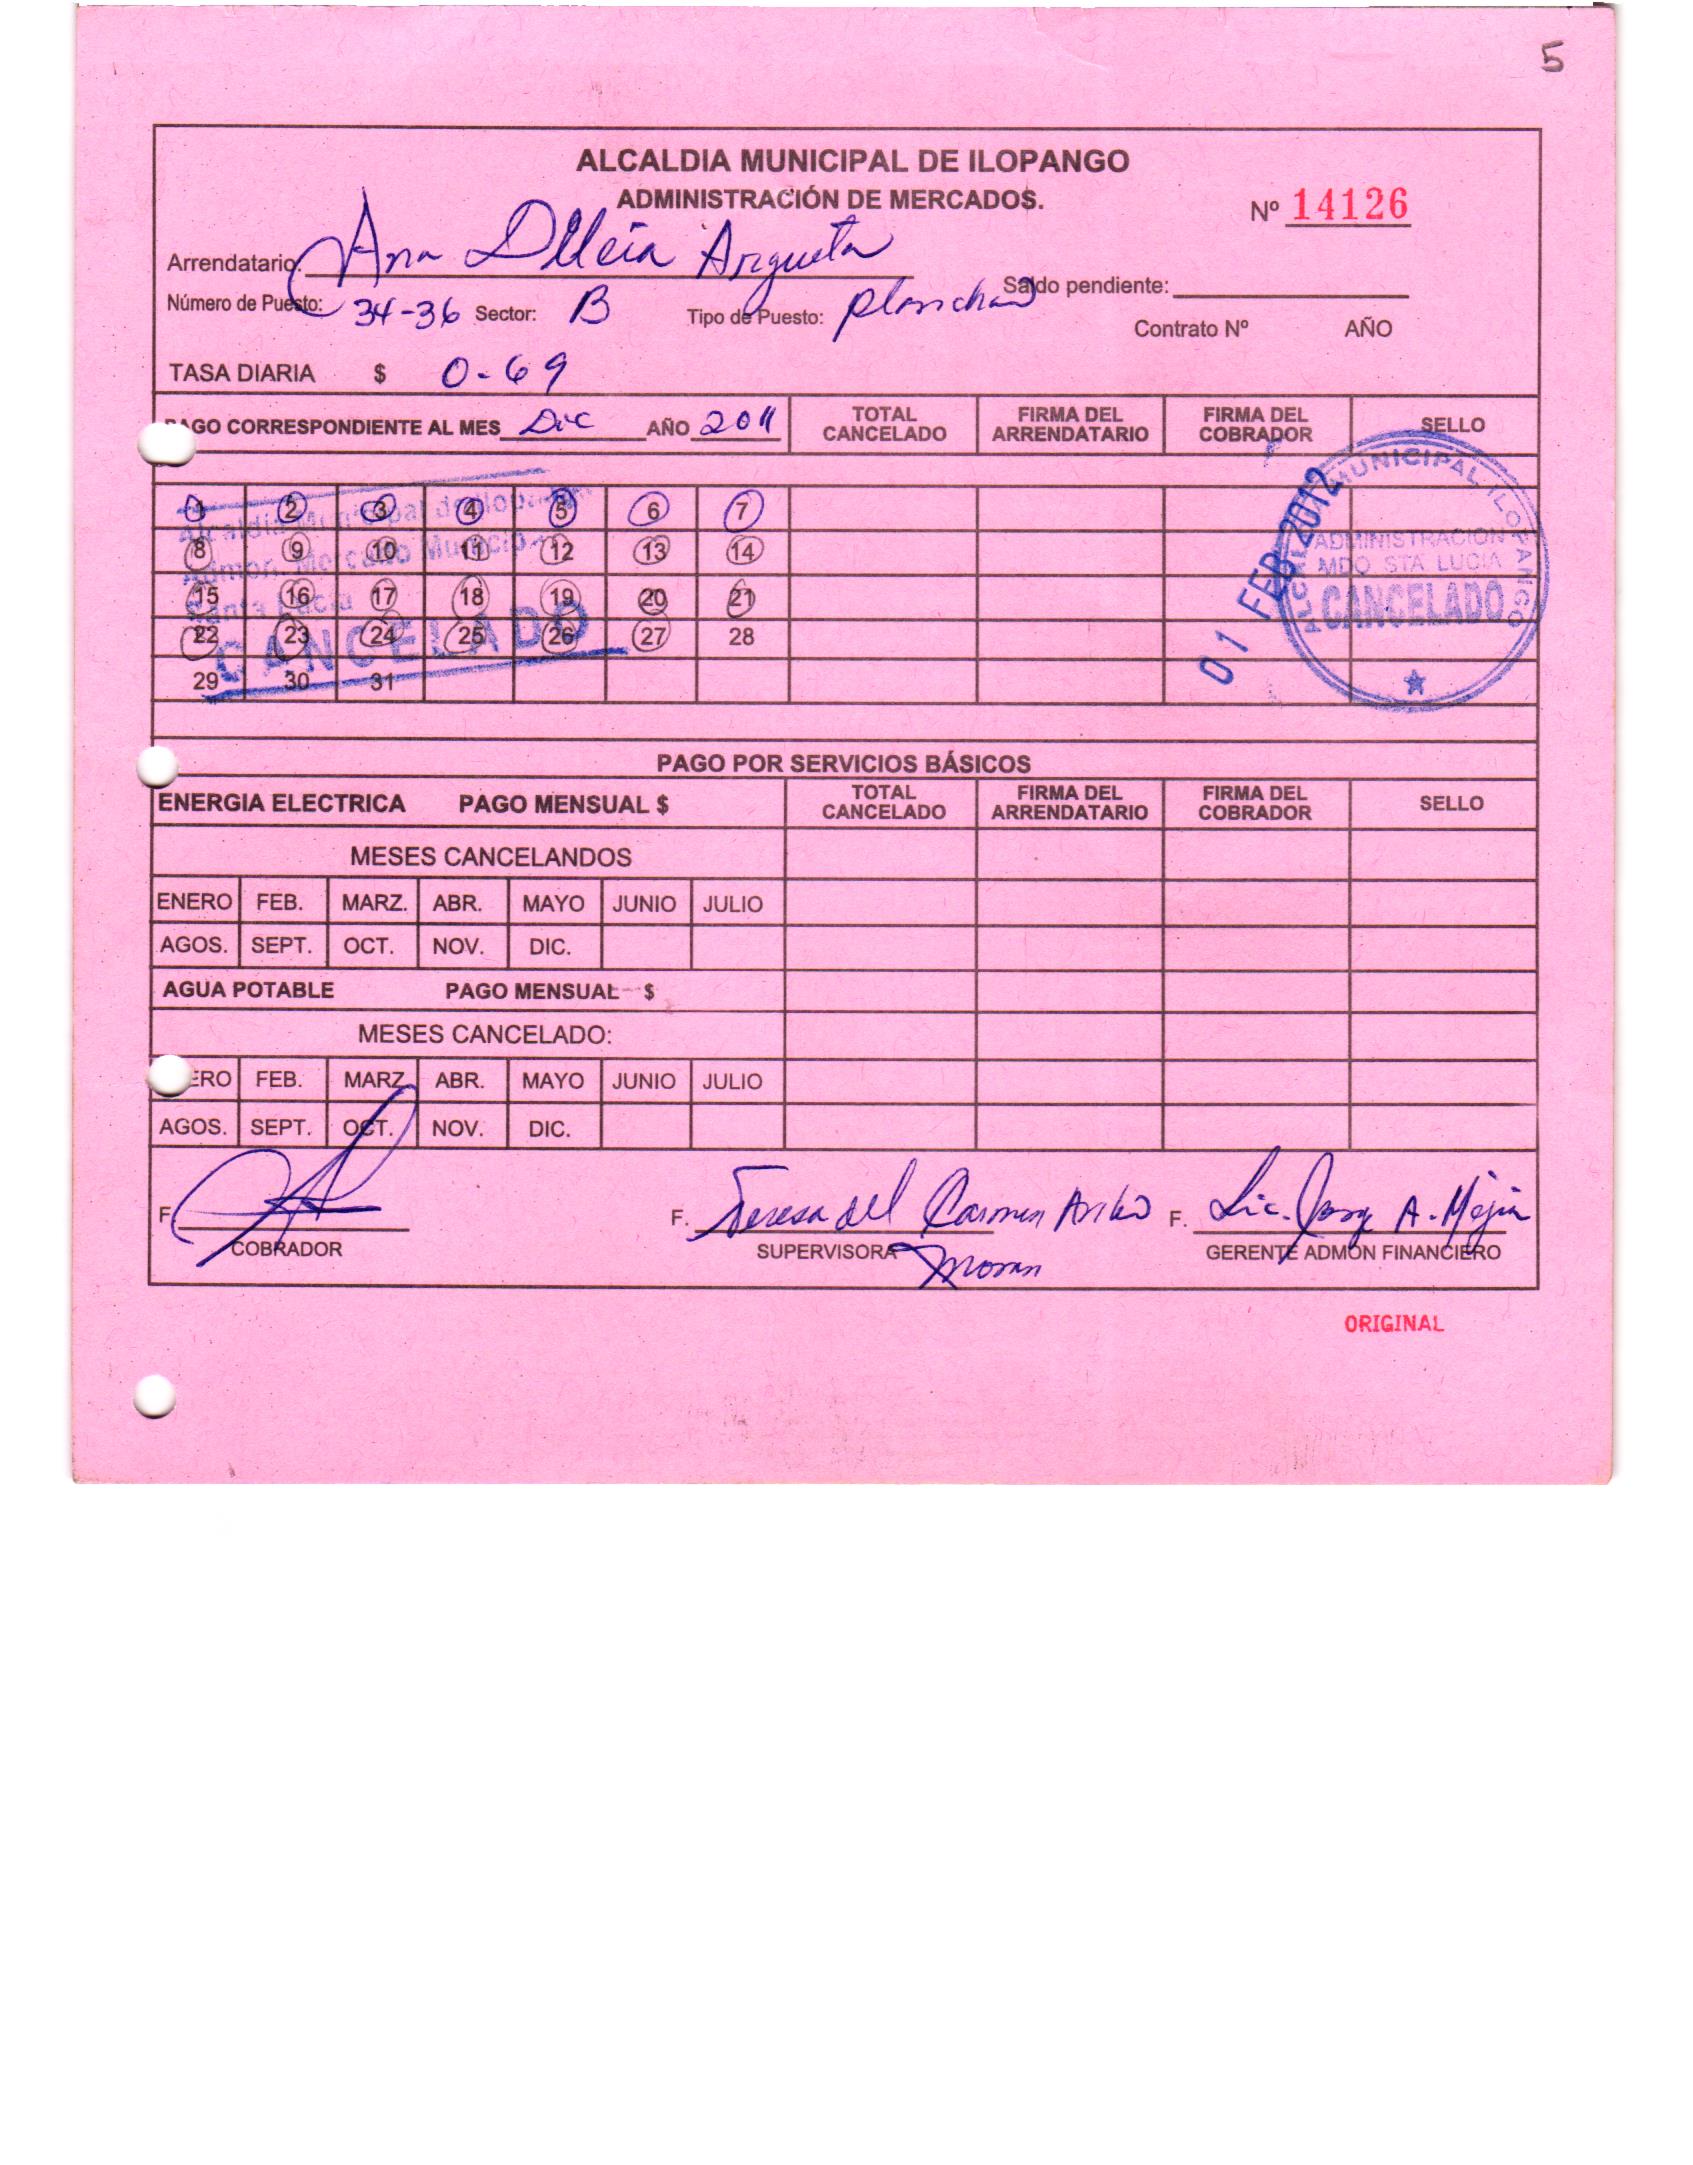 5
ALCALDIA MUNICIPAL DE ILOPANGO
ADMINISTRACIÓN DE MERCADOS.
Nº 14126
Arrendatario: Ana Argueta
Saldo pendiente:
Número de Puesto: 34-36 Sector: B Tipo de Puesto:
Contrato Nº AÑO
TASA DIARIA $ 0-69
PAGO CORRESPONDIENTE AL MES Dic AÑO 2011 TOTAL CANCELADO FIRMA DEL ARRENDATARIO FIRMA DEL COBRADOR SELLO
1 2 3 4 5 6 7
8 9 10 11 12 13 14
15 16 17 18 19 20 21
22 23 24 25 26 27 28
29 30 31
Alcaldia Municipal de Ilopango
Admon. Mercado Municipal
Santa Lucia
CANCELADO
01 FEB 2012
ALCALDIA MUNICIPAL ILOPANGO
ADMINISTRACION
MDO. STA LUCIA
CANCELADO
PAGO POR SERVICIOS BÁSICOS
ENERGIA ELECTRICA PAGO MENSUAL $ TOTAL CANCELADO FIRMA DEL ARRENDATARIO FIRMA DEL COBRADOR SELLO
MESES CANCELANDOS
ENERO FEB. MARZ. ABR. MAYO JUNIO JULIO
AGOS. SEPT. OCT. NOV. DIC.
AGUA POTABLE PAGO MENSUAL $
MESES CANCELADO:
ERO FEB. MARZ. ABR. MAYO JUNIO JULIO
AGOS. SEPT. OCT. NOV. DIC.
F. F. Teresa del Carmen F. Lic. Jorge A. Mejia
COBRADOR SUPERVISORA Moran GERENTE ADMON FINANCIERO
ORIGINAL